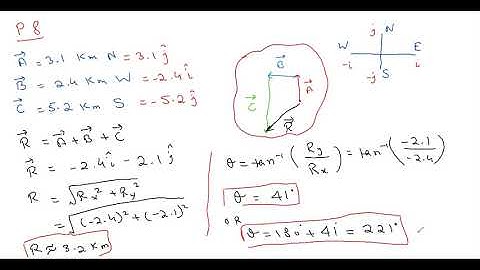 P 8
A⃗ = 3.1 Km N = 3.1 ĵ
B⃗ = 2.4 Km W = -2.4 î
C⃗ = 5.2 Km S = -5.2 ĵ
R⃗ = A⃗ + B⃗ + C⃗
R⃗ = -2.4 î - 2.1 ĵ
R = √(Rx² + Ry²)
= √((-2.4)² + (-2.1)²)
R ≈ 3.2 Km
B⃗
A⃗
C⃗
R⃗
j N
W E
-i i
-j S
θ = tan⁻¹ (Ry/Rx) = tan⁻¹ (-2.1/-2.4)
θ = 41°
OR
θ = 180° + 41 = 221°